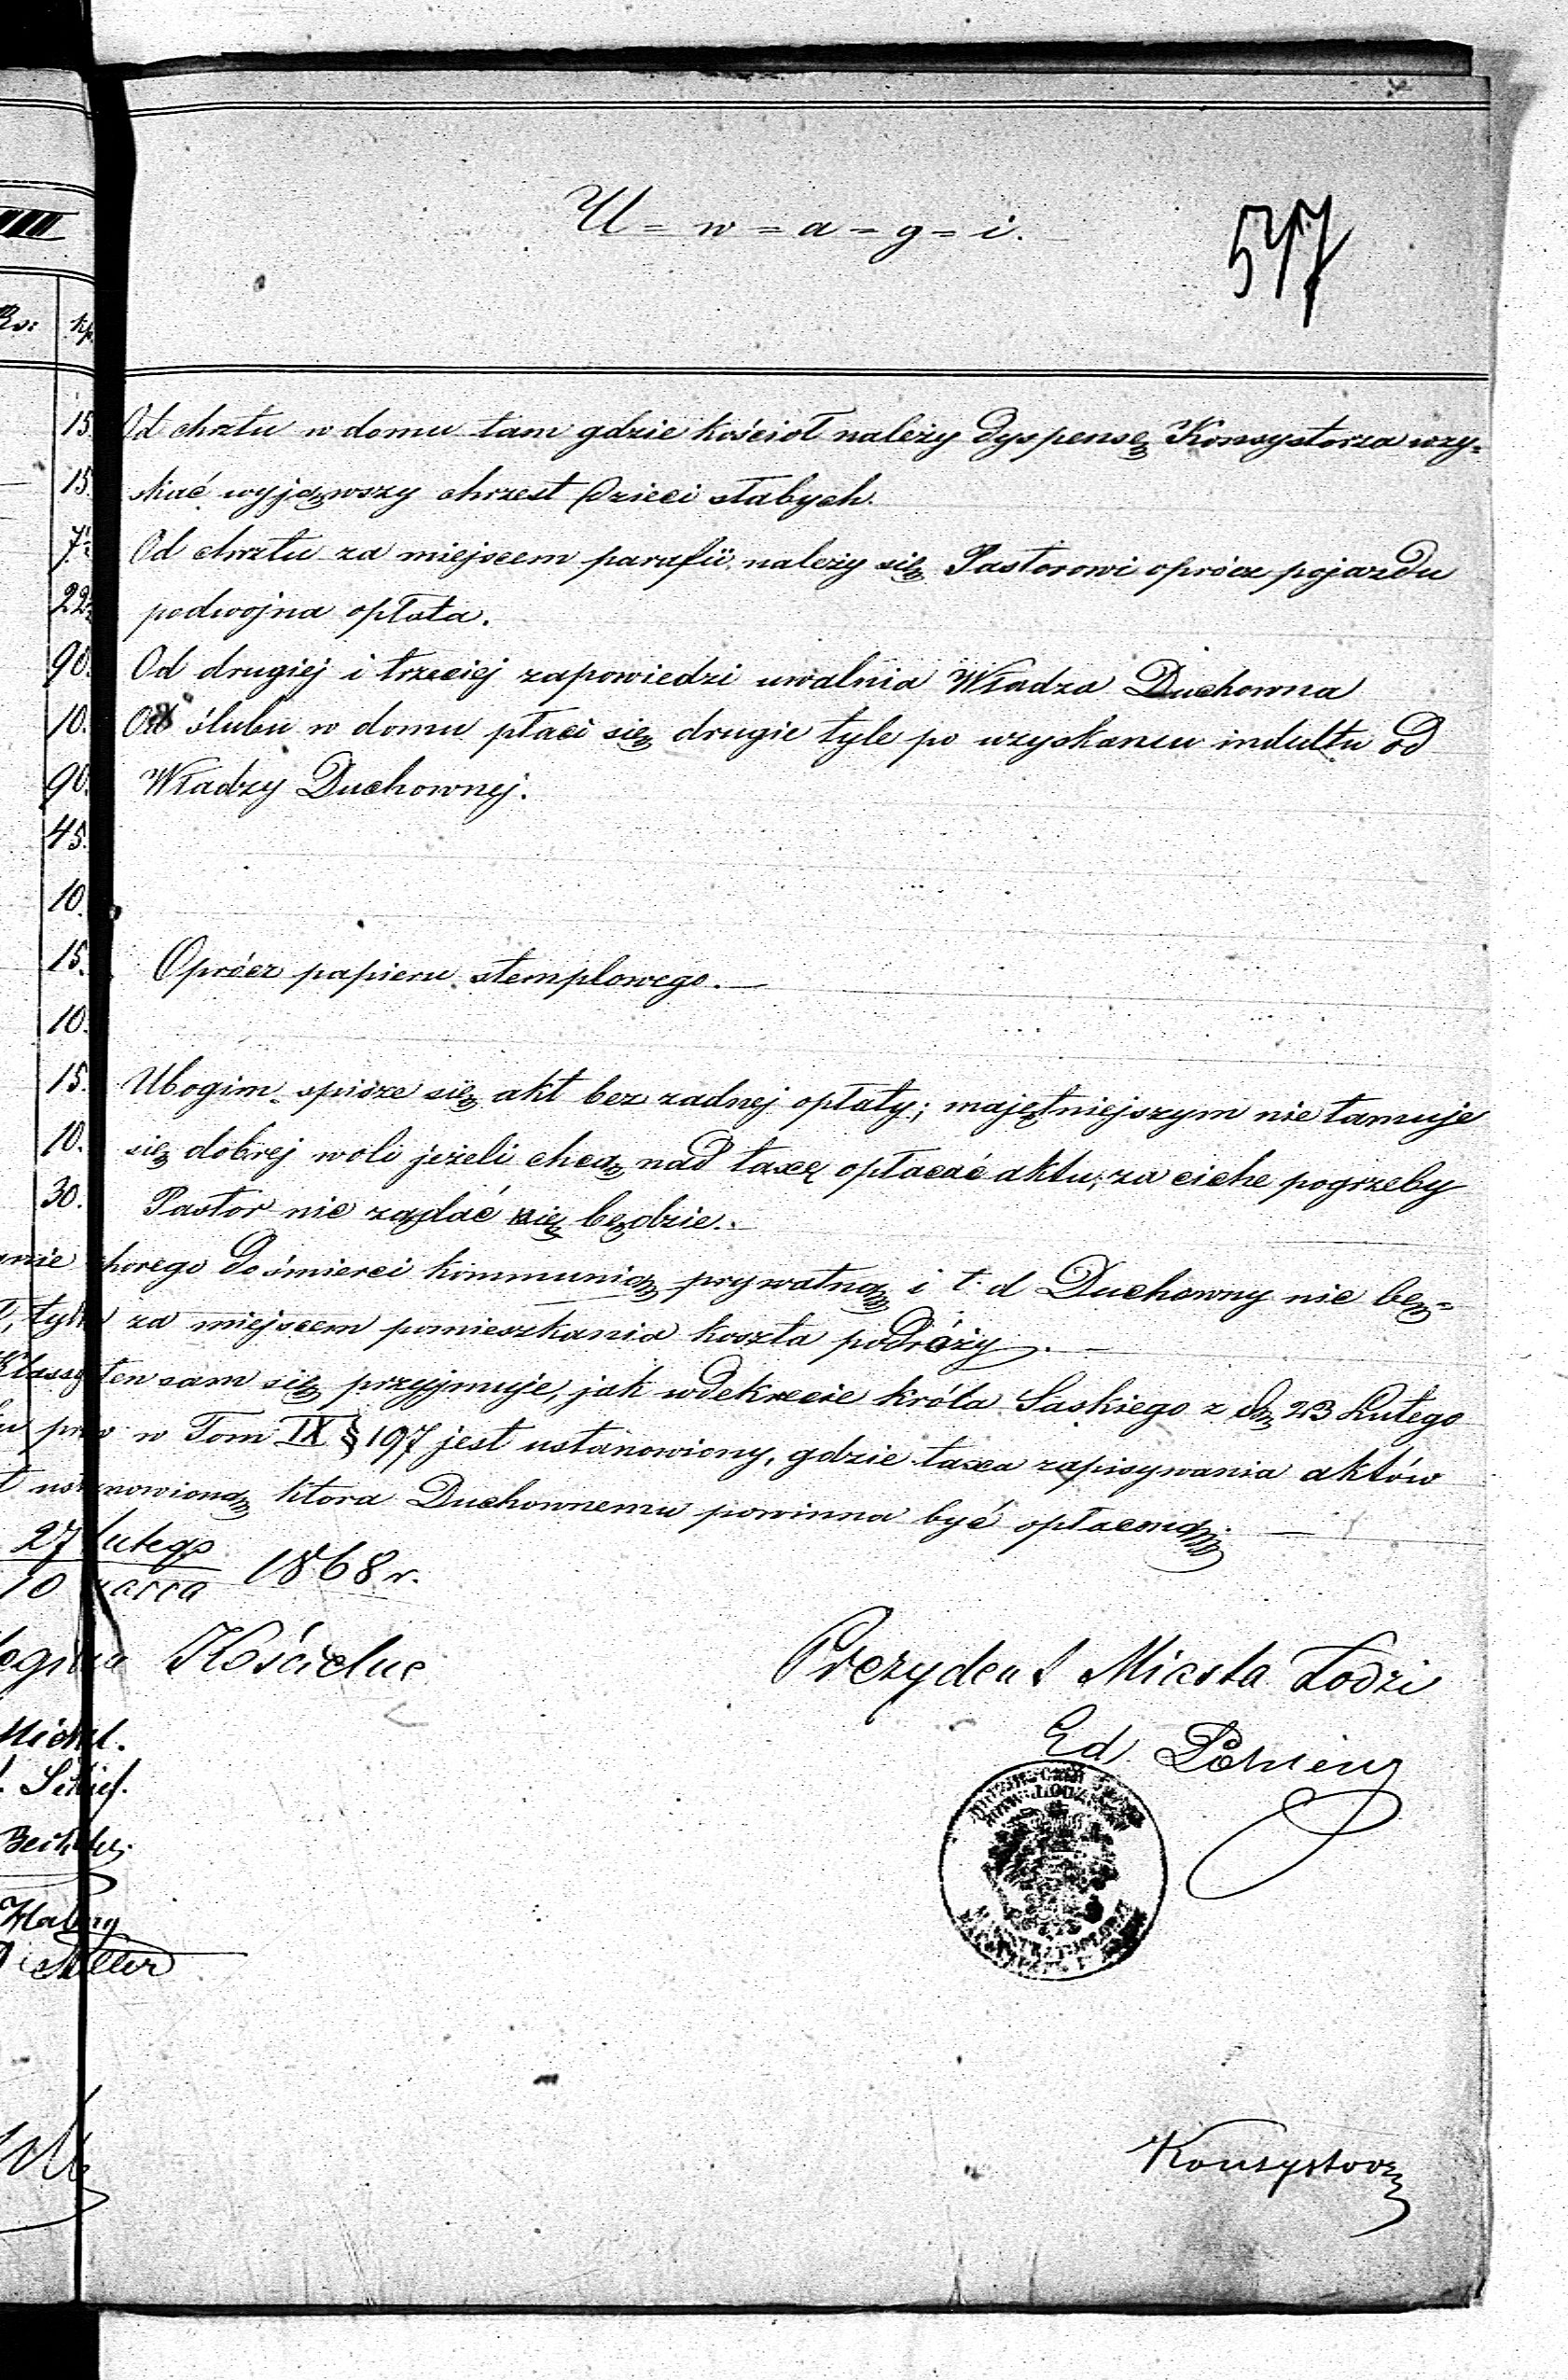 U = w = a = g = i.
577
Rs: kp.
15. Od chrztu w domu tam gdzie kościoł należy dyspensę Konsystorza uzy=
15. skać wyjąwszy chrzest dzieci słabych.
7½ Od chrztu za miejscem parafii należy się Pastorowi oprócz pojazdu
22½ podwojna opłata.
90. Od drugiej i trzeciej zapowiedzi uwalnia Władza Duchowna
10. Od ślubu w domu płaci się drugie tyle po uzyskaniu indultu od
90. Władzy Duchownej.
45.
10.
15. Oprócz papieru stemplowego. —
10.
15. Ubogim spisze się akt bez zadnej opłaty; majętniejszym nie tamuje
10. się dobrej woli jeżeli chcą nad taxę opłacać aktu; za ciche pogrzeby
30. Pastor nie żądać się będzie. —
chorego do śmierci kommunią prywatną i t. d Duchowny nie bę=
tylko za miejscem pomieszkania koszta podróży. —
Klassy ten sam się przyjmuje, jak w dekrecie króla Saskiego z d. 23 Lutego
praw w Tom IX § 197 jest ustanowiony, gdzie taxa zapisywania aktów
ustanowioną ktora Duchownemu powinna być opłaconą. —
27 lutego
10 marca 1868 r.
Kościelne
Prezydent Miasta Łodzi
Ed. Pohlens
Michel.
Müller
Konsystorz